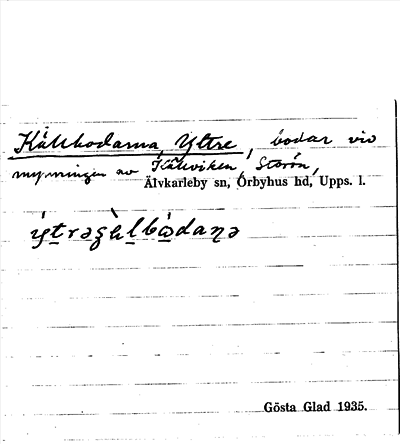 Källbodarna, Yttre, bodar vid
mynningen av Källviken, Storön,
Älvkarleby sn, Örbyhus hd, Upps. l.
Gösta Glad 1935.